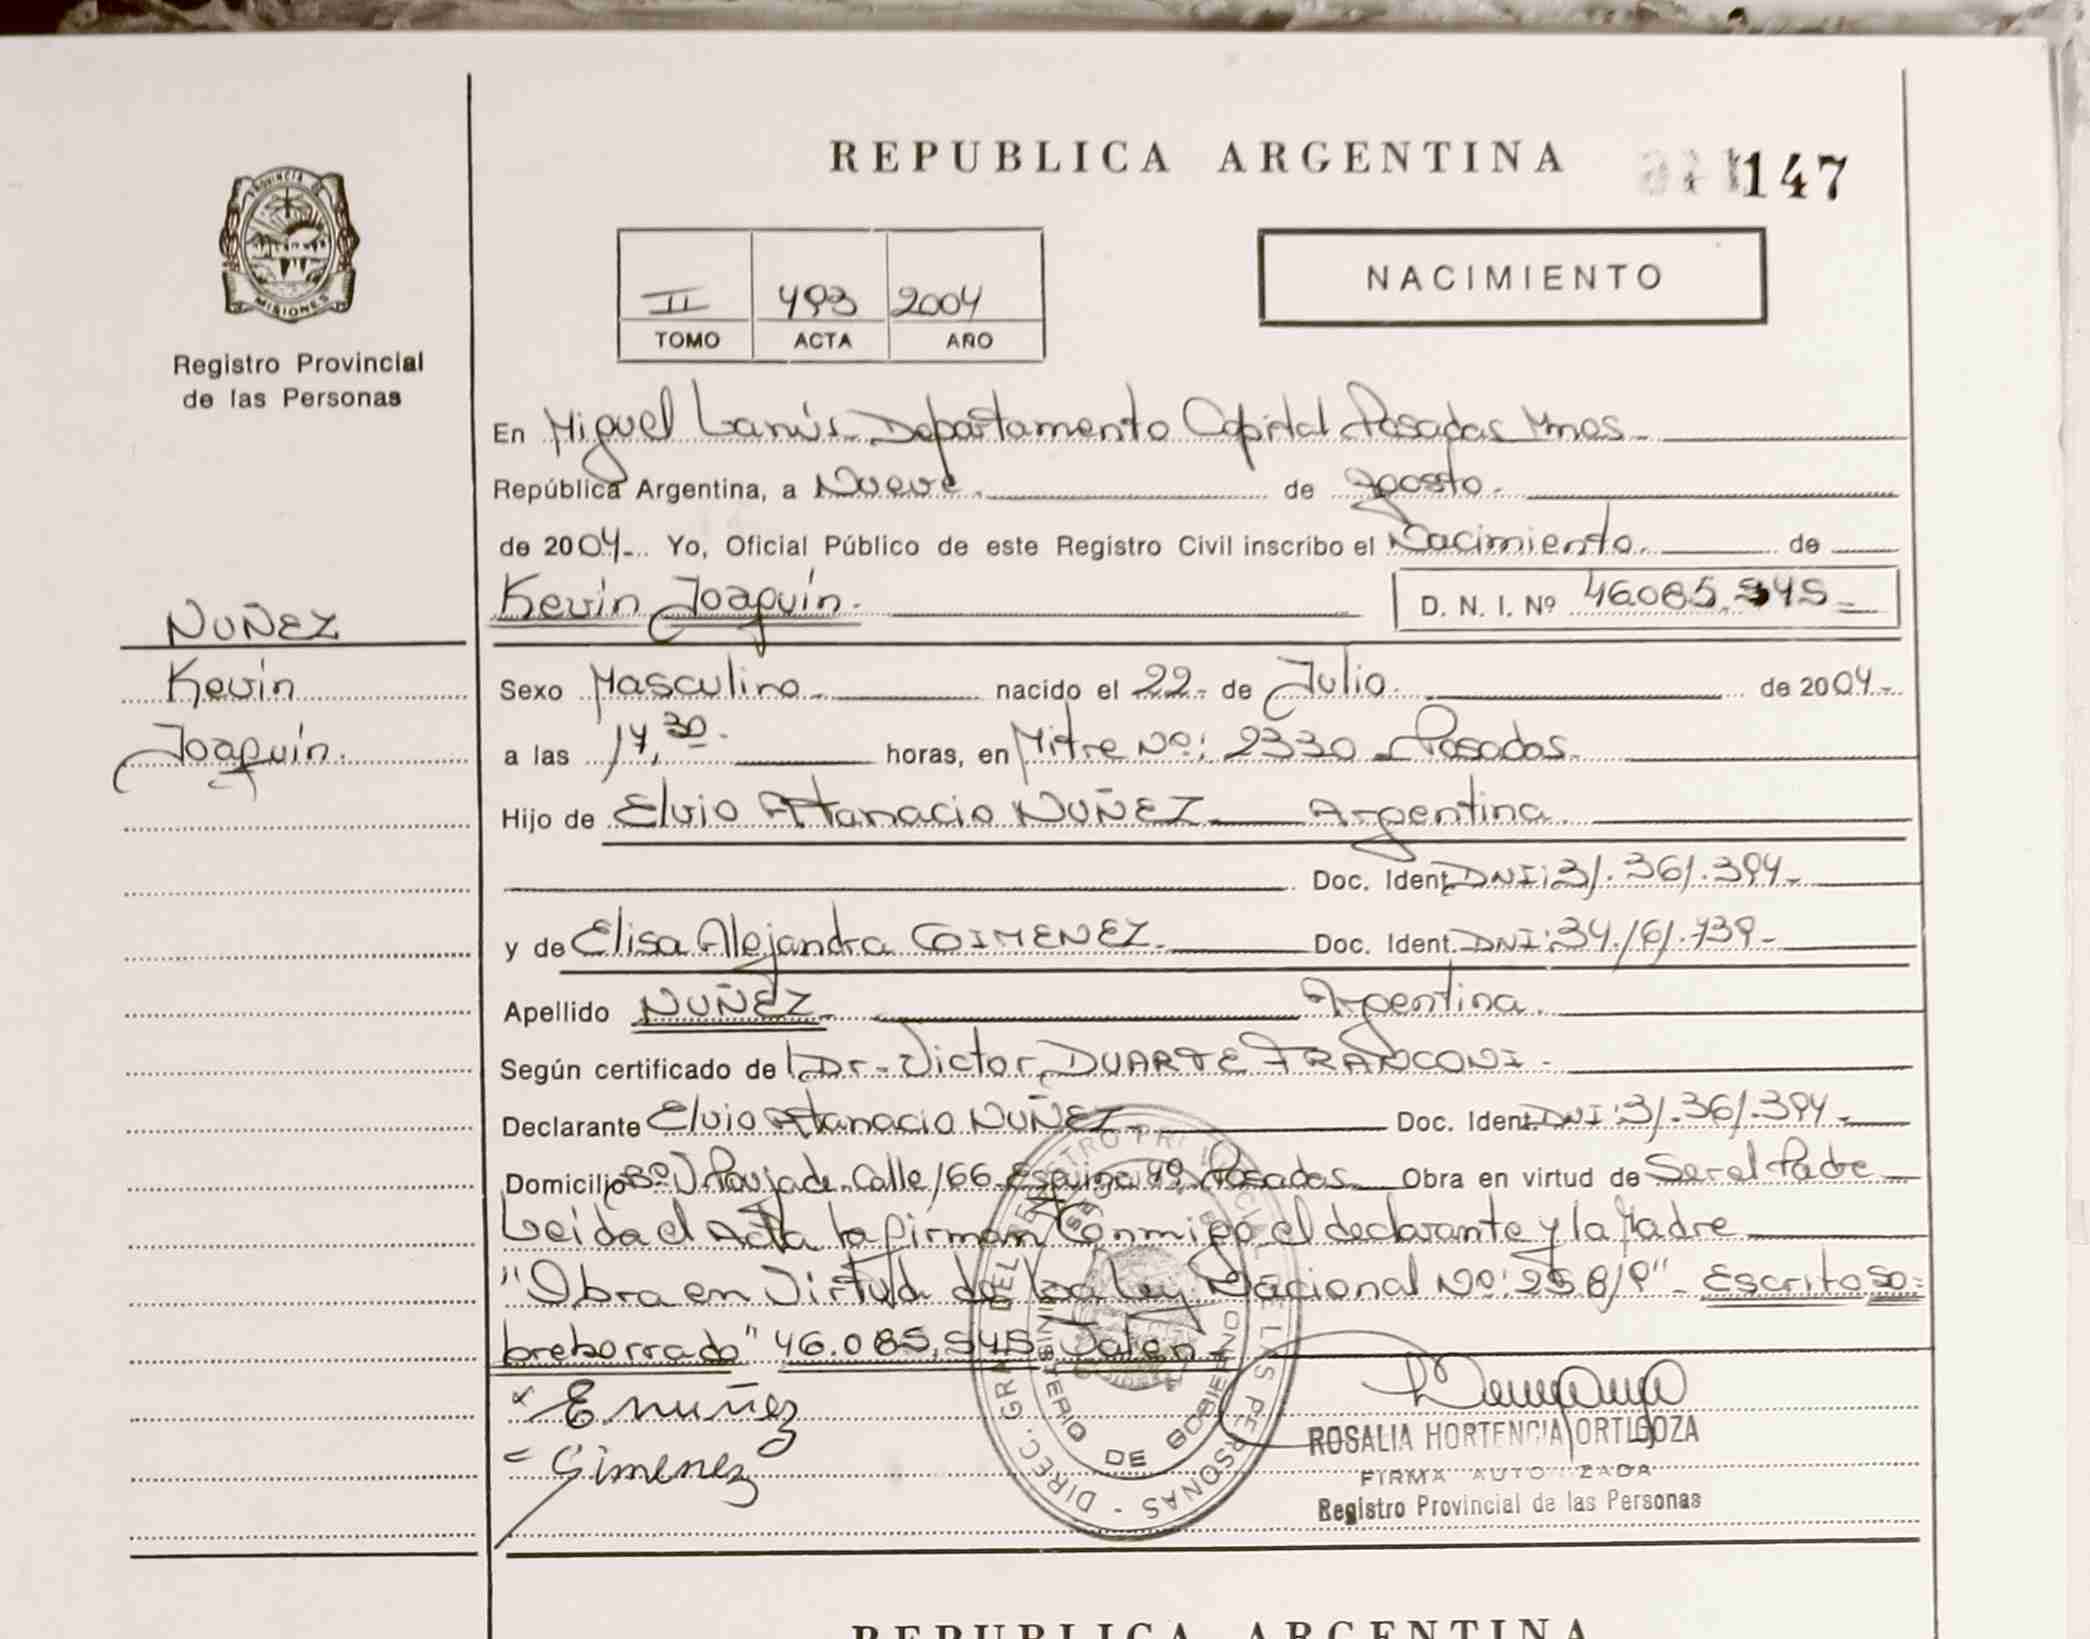 REPUBLICA ARGENTINA
147
PROVINCIA DE
MISIONES
Registro Provincial
de las Personas
II 493 2004
TOMO ACTA AÑO
NACIMIENTO
En Miguel Lanús Departamento Capital Posadas Mnes
República Argentina, a Nueve de Agosto
de 2004 Yo, Oficial Público de este Registro Civil inscribo el Nacimiento de
Kevin Joaquín. D. N. I. Nº 46.085.545
NUÑEZ
Kevin
Joaquín.
Sexo Masculino nacido el 22 de Julio de 2004
a las 14,30 horas, en Mitre Nº: 2330 Posadas
Hijo de Elvio Atanacio NUÑEZ Argentina
Doc. Ident. DNI: 31.361.394
y de Elisa Alejandra GIMENEZ Doc. Ident. DNI: 34.161.739
Apellido NUÑEZ Argentina
Según certificado de Dr. Victor DUARTE FRANCONI
Declarante Elvio Atanacio NUÑEZ Doc. Ident. DNI: 31.361.394
Domicilio Bº Calle 166 Esquina 49 Posadas Obra en virtud de Ser el Padre
Leída el Acta la firman Conmigo el declarante y la Madre
"Obra en Virtud de la Ley Nacional Nº: 25819" Escrito so=
breborrado "46.085.545 Valen
E nuñez
Gimenez
ROSALIA HORTENCIA ORTIGOZA
FIRMA AUTORIZADA
Registro Provincial de las Personas
DIREC. GRAL DEL REGISTRO PROVINCIAL DE LAS PERSONAS
MINISTERIO DE GOBIERNO
REPUBLICA ARGENTINA